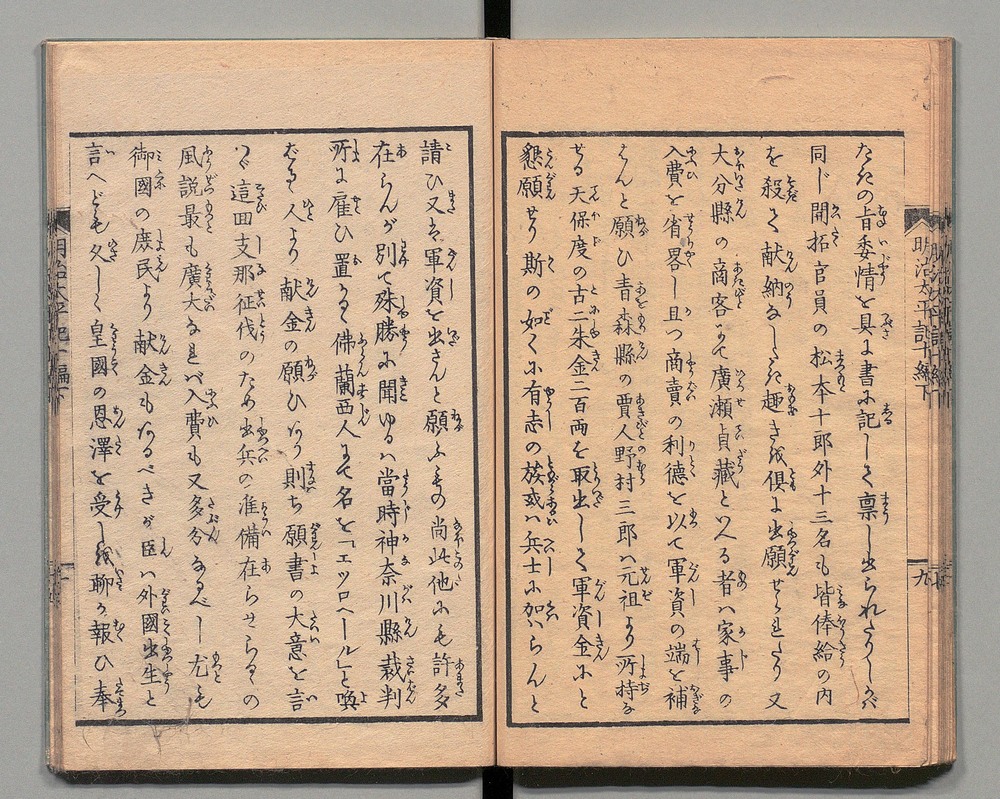 たきの旨委情を具に書に記して稟し出られたりしが
同じ開拓官員の松本十郎外十三名も皆俸給の内
を殺て献納なしたき趣きを倶に出願せられたり又
大分縣の商客にて廣瀬貞藏といへる者ハ家事の
入費を省畧し且つ商賣の利徳を以て軍資の端を補
はんと願ひ青森縣の賈人野村三郎ハ元祖より所持な
せる天保度の古二朱金二百両を取出して軍資金にと
懇願せり斯の如くに有志の族或ハ兵士に加ハらんと
請ひ又は軍資を出さんと願ふもの尚此他にも許多
在らんが別て殊勝に聞ゆるハ當時神奈川縣裁判
所に雇ひ置るゝ佛蘭西人にて名を「エツロヘール」と喚
なる人より献金の願ひあり則ち願書の大意を言
つバ這回支那征伐のため出兵の准備在らせらるゝの
風説最も廣大なれバ入費も又多分なるべし尤も
御國の庶民より献金もあるべきが臣ハ外國出生と
言へども久しく皇國の恩澤を受しを聊か報ひ奉
明治太平記十編下
九
明治太平記十編下
十